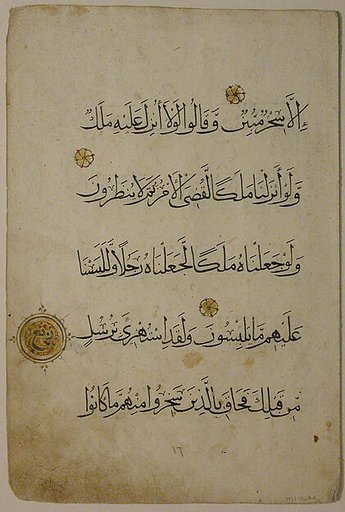 إِلَّا سِحْرٌ مُّبِينٌ وَقَالُوا لَوْلَا أُنزِلَ عَلَيْهِ مَلَكٌ
وَلَوْ أَنزَلْنَا مَلَكًا لَّقُضِيَ الْأَمْرُ ثُمَّ لَا يُنظَرُونَ
وَلَوْ جَعَلْنَاهُ مَلَكًا لَّجَعَلْنَاهُ رَجُلًا وَلَلَبَسْنَا
عَلَيْهِم مَّا يَلْبِسُونَ وَلَقَدِ اسْتُهْزِئَ بِرُسُلٍ
مِّن قَبْلِكَ فَحَاقَ بِالَّذِينَ سَخِرُوا مِنْهُم مَّا كَانُوا
١٦